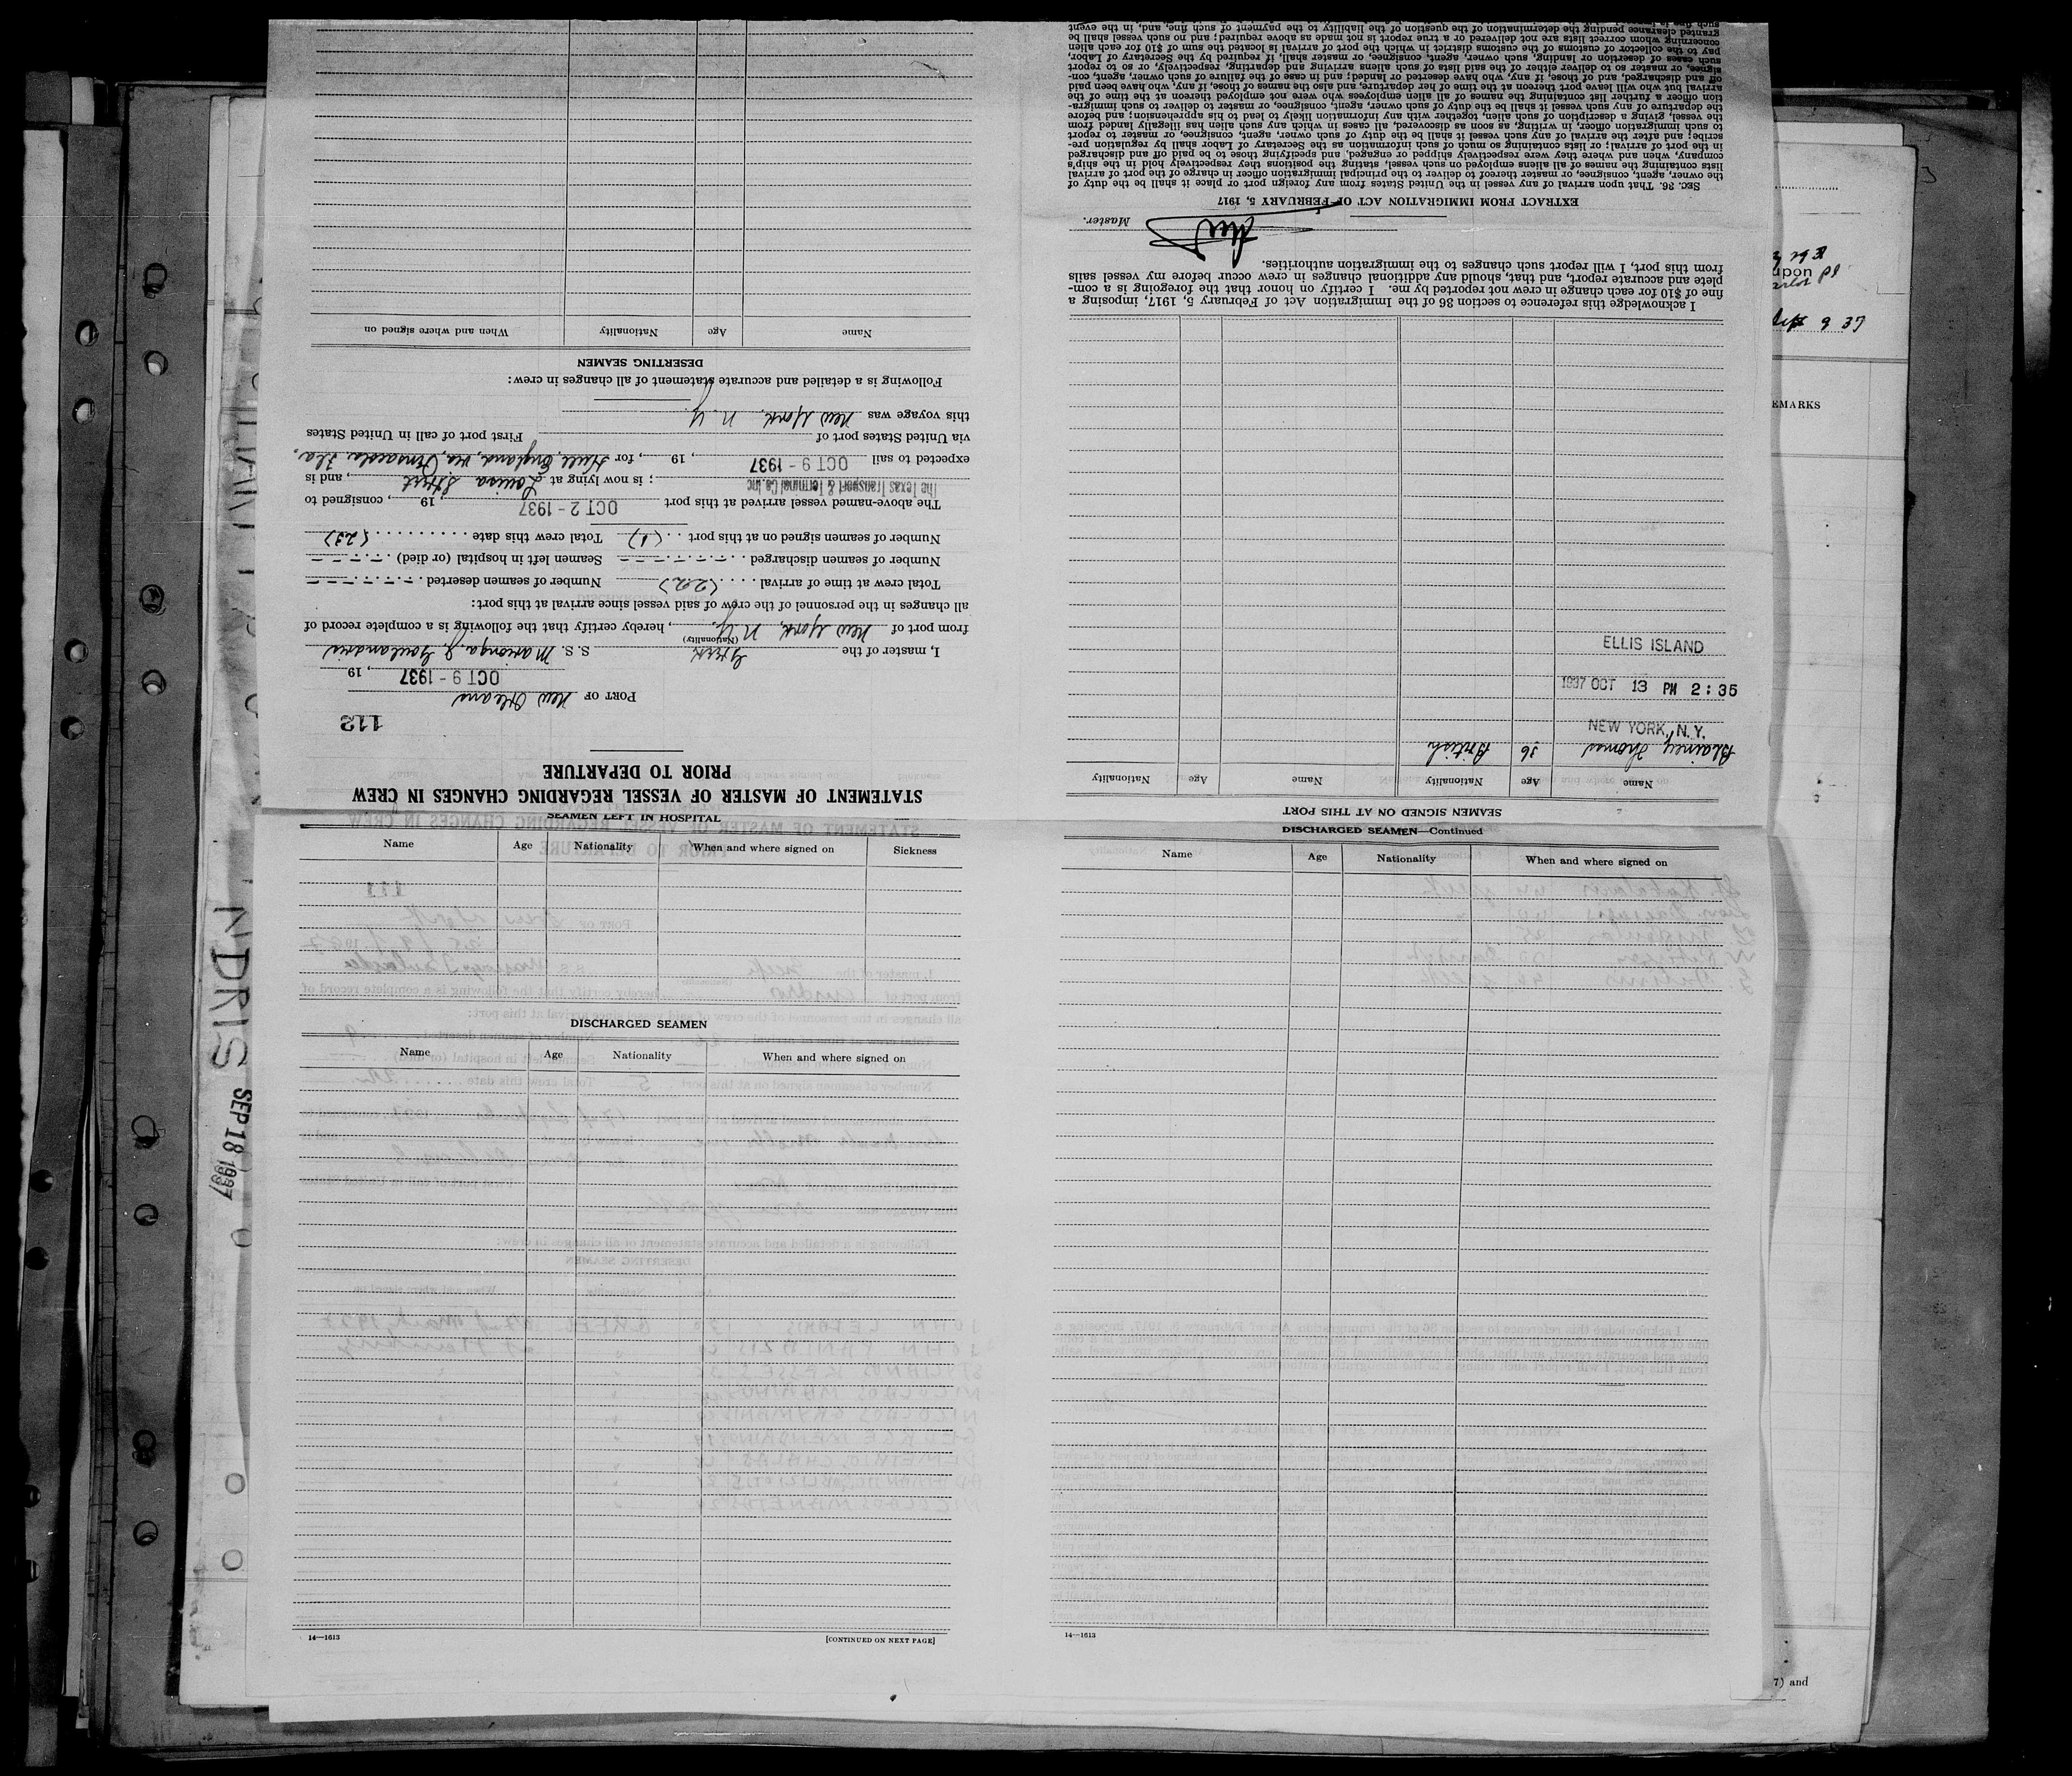 STATEMENT OF MASTER OF VESSEL REGARDING CHANGES IN CREW
PRIOR TO DEPARTURE
112
PORT OF New Orleans
OCT 9 - 1937, 19
I, master of the Greek S. S. Marionga J. Goulandris
(Nationality)
from port of New York, N.Y., hereby certify that the following is a complete record of
all changes in the personnel of the crew of said vessel since arrival at this port:
Total crew at time of arrival (22) Number of seamen deserted
Number of seamen discharged Seamen left in hospital (or died)
Number of seamen signed on at this port (1) Total crew this date (23)
The above-named vessel arrived at this port OCT 2 - 1937, 19, consigned to
The Texas Transport & Terminal Co. Inc; is now lying at Louisa Street, and is
expected to sail OCT 9 - 1937, 19, for Hull, England, via Pensacola Fla.
via United States port of First port of call in United States
this voyage was New York, N.Y.
Following is a detailed and accurate statement of all changes in crew:
DESERTING SEAMEN
Name Age Nationality When and where signed on
SEAMEN SIGNED ON AT THIS PORT
Name Age Nationality Name Age Nationality
Blainey Thomas 36 British
NEW YORK, N.Y.
1937 OCT 13 PM 2:35
ELLIS ISLAND
I acknowledge this reference to section 36 of the Immigration Act of February 5, 1917, imposing a
fine of $10 for each change in crew not reported by me. I certify on honor that the foregoing is a com-
plete and accurate report, and that, should any additional changes in crew occur before my vessel sails
from this port, I will report such changes to the immigration authorities.
Master.
EXTRACT FROM IMMIGRATION ACT OF FEBRUARY 5, 1917
SEC. 36. That upon arrival of any vessel in the United States from any foreign port or place it shall be the duty of
the owner, agent, consignee, or master thereof to deliver to the principal immigration officer in charge of the port of arrival
lists containing the names of all aliens employed on such vessel, stating the positions they respectively hold in the ship's
company, when and where they were respectively shipped or engaged, and specifying those to be paid off and discharged
in the port of arrival; or lists containing so much of such information as the Secretary of Labor shall by regulation pre-
scribe; and after the arrival of any such vessel it shall be the duty of such owner, agent, consignee, or master to report
to such immigration officer, in writing, as soon as discovered, all cases in which any such alien has illegally landed from
the vessel, giving a description of such alien, together with any information likely to lead to his apprehension; and before
the departure of any such vessel it shall be the duty of such owner, agent, consignee, or master to deliver to such immigra-
tion officer a further list containing the names of all alien employees who were not employed thereon at the time of the
arrival but who will leave port thereon at the time of her departure, and also the names of those, if any, who have been paid
off and discharged, and of those, if any, who have deserted or landed; and in case of the failure of such owner, agent, con-
signee, or master so to deliver either of the said lists of such aliens arriving and departing, respectively, or so to report
such cases of desertion or landing, such owner, agent, consignee, or master shall, if required by the Secretary of Labor,
pay to the collector of customs of the customs district in which the port of arrival is located the sum of $10 for each alien
concerning whom correct lists are not delivered or a true report is not made as above required; and no such vessel shall be
granted clearance pending the determination of the question of the liability to the payment of such fine, and, in the event
SEAMEN LEFT IN HOSPITAL
Name Age Nationality When and where signed on Sickness
DISCHARGED SEAMEN
Name Age Nationality When and where signed on
14—1613 [CONTINUED ON NEXT PAGE]
DISCHARGED SEAMEN—Continued
Name Age Nationality When and where signed on
14—1613
SEP 18 1937
upon
9 37
EMARKS
7) and